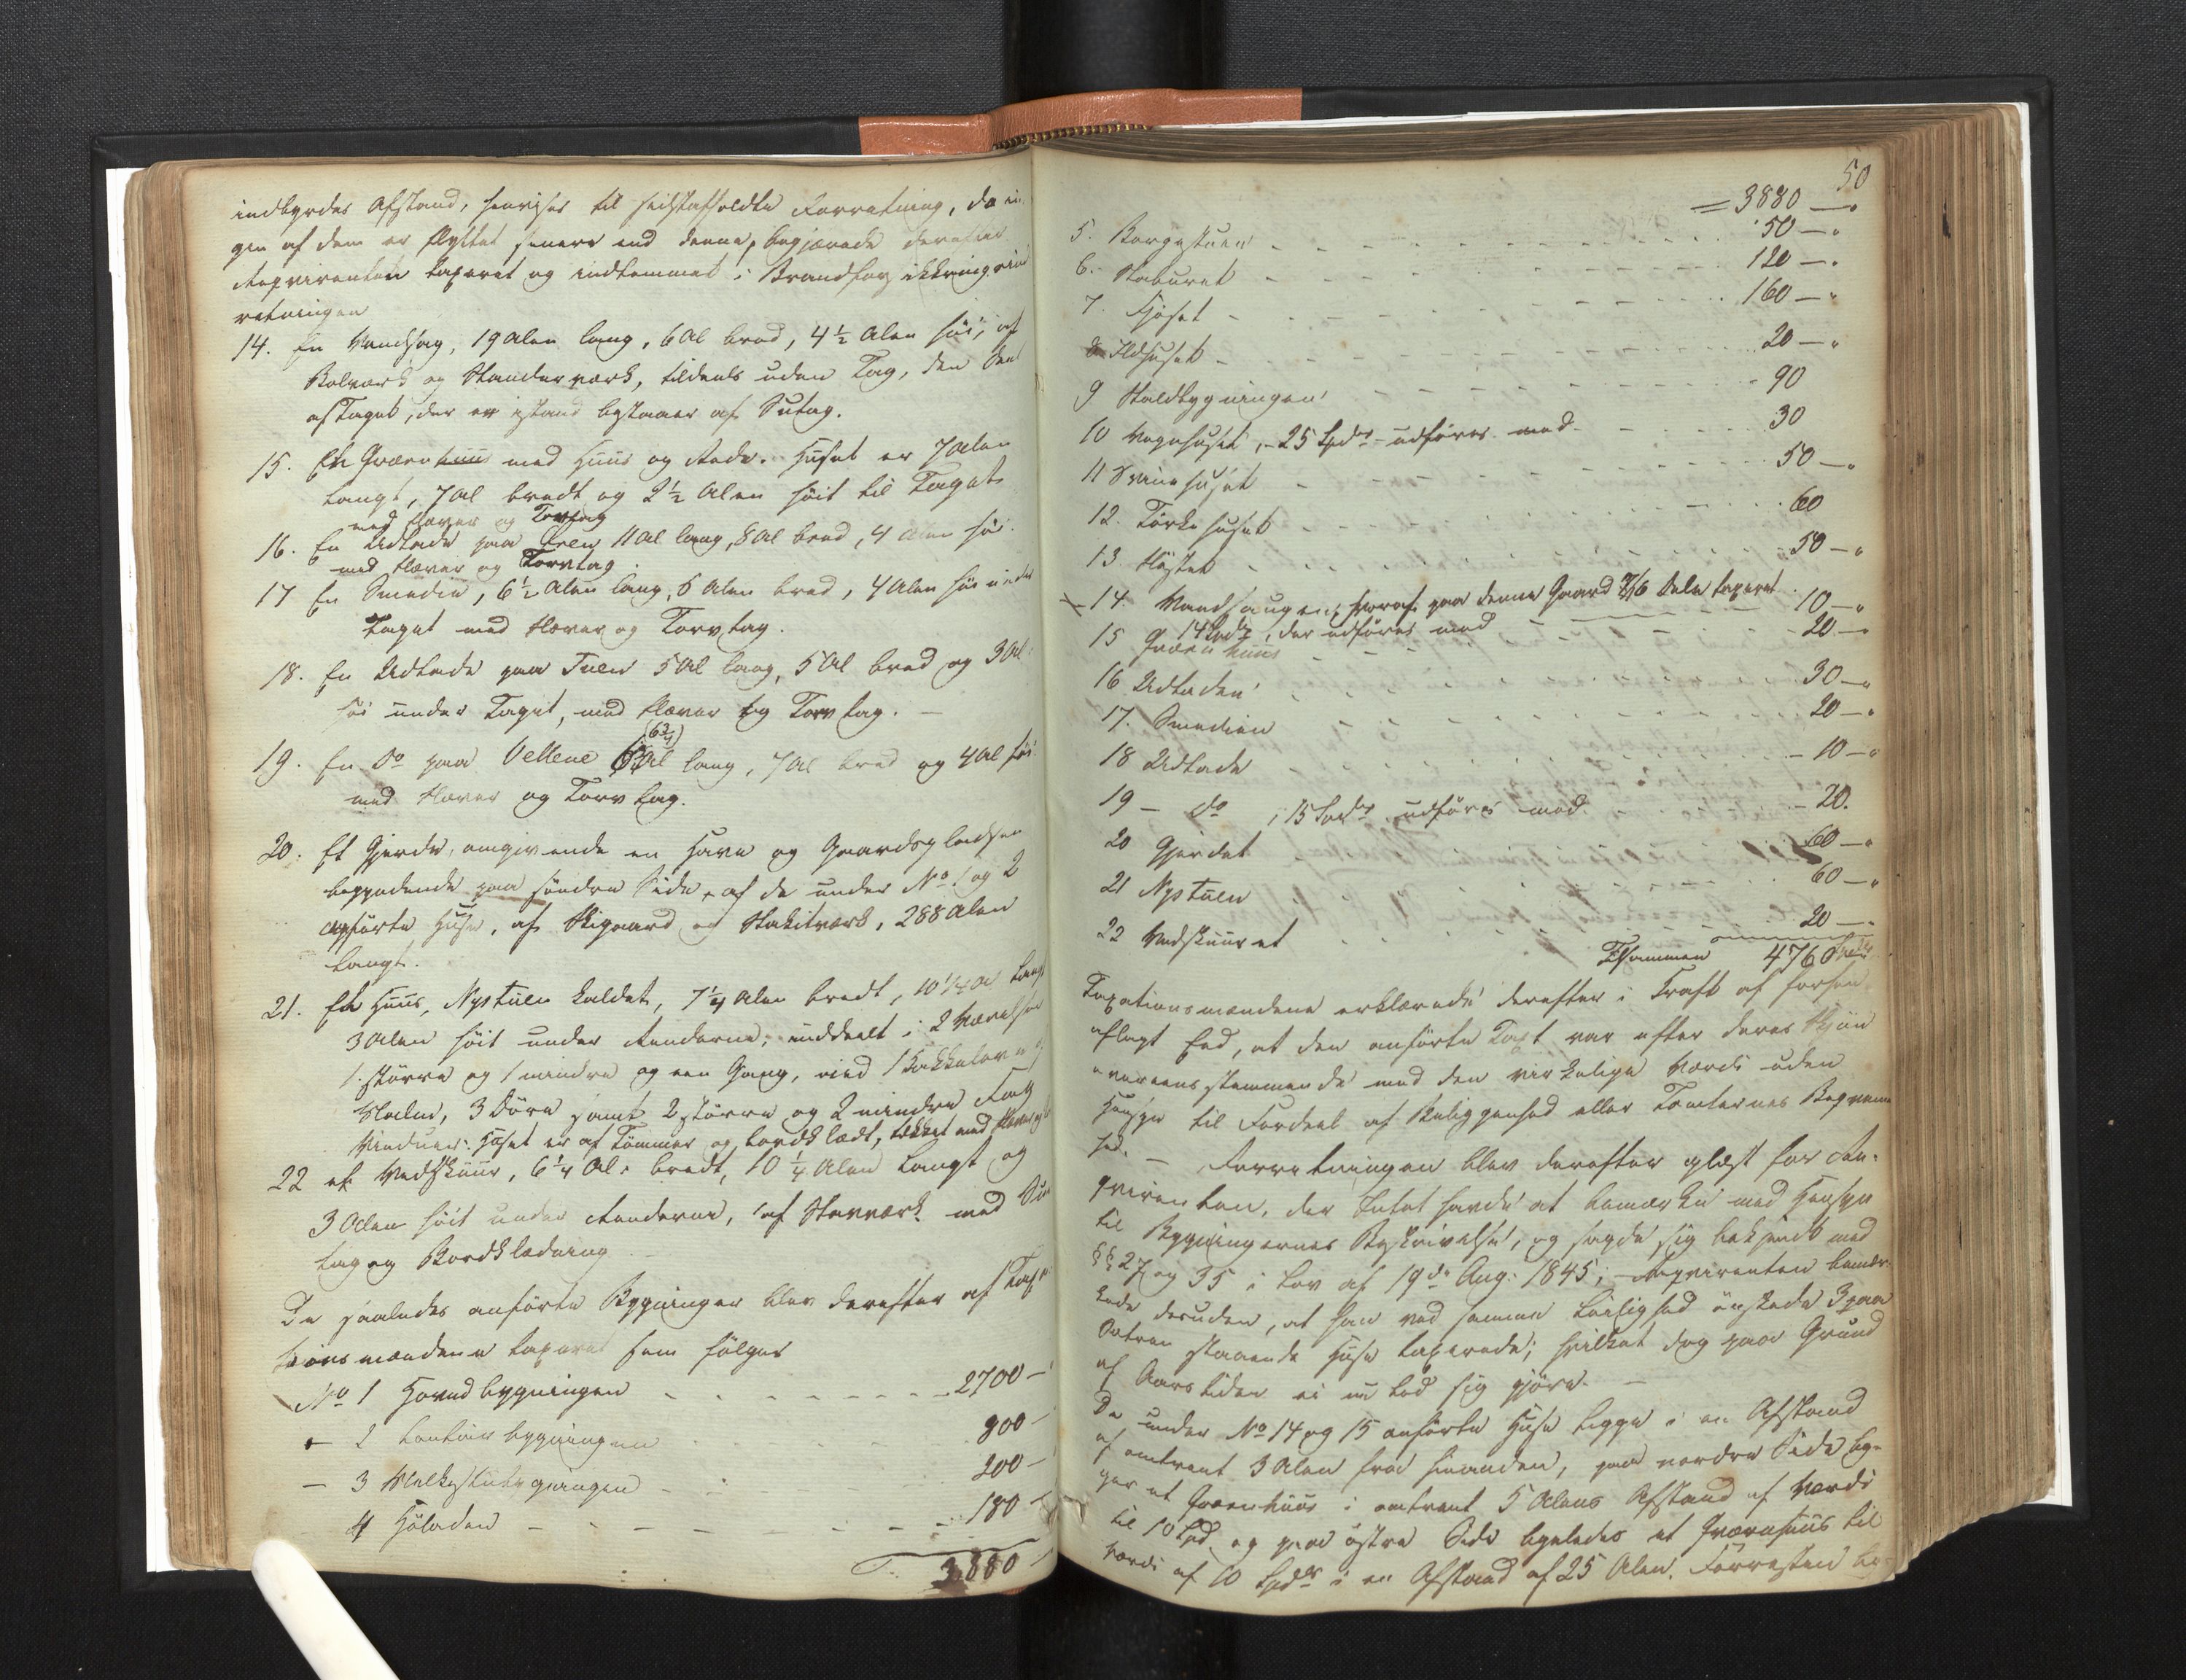 indbyrdes Afstand, henvises til sidstafholdte Forretning, da in
gen af dem er flyttet senere end denne, begjærede derefter
Reqvirenten taxeret og indlemmet i Brandforsikkringsind
retningen
14. En Vandsag, 19 Alen lang, 6 Al bred, 4 1/2 Alen høi, af
Bolværk og Standerværk, tildeels uden Tag, den Deel
af Taget, der er istand bestaaer af Sutag.
15. Et Qværnhuus med Huus og Rede. Huset er 7 Alen
langt, 7 Al bredt og 2 1/2 Alen høit til Taget
med Næver og Torvtag
16. En Udlade paa 11 Al lang, 8 Al bred, 4 Alen høi
med Næver og Torvtag
17 En Smedie, 6 1/2 Alen lang, 6 Alen bred, 4 Alen høi under
Taget med Næver og Torvtag.
18. En Udlade paa 5 Al lang, 5 Al bred og 3 Al
høi under Taget, med Næver og Torvtag. —
19. En Do paa Vellene (6 3/4) Al lang, 7 Al bred og 4 Al høi
med Næver og Torvtag.
20. Et Gjerde, omgivende en Have og Gaardspladsen
beggyndende paa søndre Side af de under No 1 og 2
opførte Huse, af Skigaard og Stakitværk, 288 Alen
langt.
21. Et Huus, Nystuen kaldet, 7 1/4 Alen bredt, 10 1/4 Al langt
3 Alen høit under Renderne, inddeelt i 2 Værelser
1 større og 1 mindre og een Gang, med 1 Kakkelovn
3 Døre samt 2 større og 2 mindre Fag
Vinduer. Huset er af Tømmer og bordklædt, tækket med
22 et Vedskuur, 6 1/4 Al. bredt, 10 1/4 Alen langt og
3 Alen høit under Renderne, af Stavværk med Su
tag og Bordklædning
De saaledes anførte Bygninger blev derefter af Taxa
tionsmændene taxeret som følger
No 1 Hovedbygningen - - - - 2700 —
— 2 bygningen 800 —
— 3 Melkestubygningen 200 —
4 Høladen - - - - 180 —
T. 3880 —
50
= 3880 —
5. Borgestuen - - - 50 —
6. Staburet - - - 120 —
7. Fjøset - - - 160 —
8 Ildhuset - - - 20 —
9 Staldbygningen - - - 90
10 Vognhuset, 25 Spdr udføres med - - 30
11 Svinehuset - - - 50 —
12. Tørkehuset - - - 60
13. - - - 50 —
14 Vandsaugen, hvoraf paa denne Gaard Dele taxeret
14 Spdr, der udføres med 10 —
15 Qværnhuus - - - 20 —
16 Udladen - - - 30 —
17. Smedien - - - 20 —
18 Udlade - - - 10 —
19 — do, 15 Spdr udføres med - 20.
20 Gjerdet - - - 60 —
21 Nystuen - - - 60 —
22 Vedskuuret - - - 20 —
Tilsammen 4760 Spdr
Taxationsmændene erklærede derefter i Kraft af forhen
aflagt Eed, at den anførte Taxt var efter deres Skjøn
overeensstemmende med den virkelige Værdi uden
Hensyn til Fordeel af Beliggenhed eller Tomternes Beqvem
hed. — Forretningen blev derefter oplæst for Re-
qvirenten, der Intet havde at bemærke med Hensyn
til Bygningernes Beskrivelse, og sagde sig bekjendt med
§§ 27 og 35 i Lov af 19de Aug: 1845; Reqvirenten bemær-
kede desuden, at han ved samme Leilighed ønskede 3 paa
Sætren staaende Huse taxerede; hvilket dog paa Grund
af Aarstiden ei nu lod sig gjøre. —
De under No 14 og 15 anførte Huse ligge i en Afstand
af omtrent 3 Alen fra hinanden, paa nordre Side lig-
ger et Qværnhuus i omtrent 5 Alens Afstand af Værdi
til 10 Spd. og paa østre Side ligeledes et Qværnhuus til
Værdi af 10 Spdr i en Afstand af 25 Alen. Forresten be-